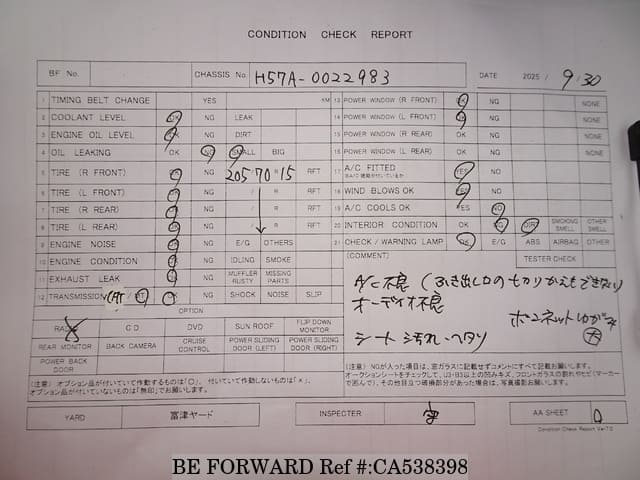 CONDITION CHECK REPORT
BF No. CHASSIS No. H57A-0022983 DATE 2025 / 9/30
1 TIMING BELT CHANGE YES KM 13 POWER WINDOW (R FRONT) OK NG NONE
2 COOLANT LEVEL OK NG LEAK 14 POWER WINDOW (L FRONT) OK NG NONE
3 ENGINE OIL LEVEL OK NG DIRT 15 POWER WINDOW (R REAR) OK NG NONE
4 OIL LEAKING OK NG SMALL BIG 16 POWER WINDOW (L REAR) OK NG NONE
5 TIRE (R FRONT) OK NG 205/70 R 15 RFT 17 A/C FITTED YES NO
6 TIRE (L FRONT) OK NG / R RFT 18 WIND BLOWS OK YES NO
7 TIRE (R REAR) OK NG / R RFT 19 A/C COOLS OK YES NO
8 TIRE (L REAR) OK NG / R RFT 20 INTERIOR CONDITION OK NG DIRT SMOKING SMELL OTHER SMELL
9 ENGINE NOISE OK NG E/G OTHERS 21 CHECK / WARNING LAMP OK E/G ABS AIRBAG OTHER
10 ENGINE CONDITION OK NG IDLING SMOKE TESTER CHECK
11 EXHAUST LEAK OK NG MUFFLER RUSTY MISSING PARTS
12 TRANSMISSION (AT / MT) OK NG SHOCK NOISE SLIP
(COMMENT)
A/C不良 (ふき出し口の切りかえもできない)
オーディオ不良
ボンネットゆがみ
大
シート汚れ・ヘタリ
OPTION
RADIO CD DVD SUN ROOF FLIP DOWN MONITOR
REAR MONITOR BACK CAMERA CRUISE CONTROL POWER SLIDING DOOR (LEFT) POWER SLIDING DOOR (RIGHT)
POWER BACK DOOR
(注意) オプション品が付いていて作動するものは「○」、付いていて作動しないものは「×」、
オプション品が付いていないものは「無印」でお願いします。
(注意) NGが入った項目は、窓ガラスに記載せずコメントにすべて記載お願いします。
オークションシートをチェックして、U3・B3以上の凹みキズ、フロントガラスの割れやヒビ(マーカー
で囲んで)、その他目立つ損傷部分があった場合は、写真撮影お願いします。
YARD 富津ヤード INSPECTER AA SHEET 0
Condition Check Report Ver7.0
BE FORWARD Ref #:CA538398